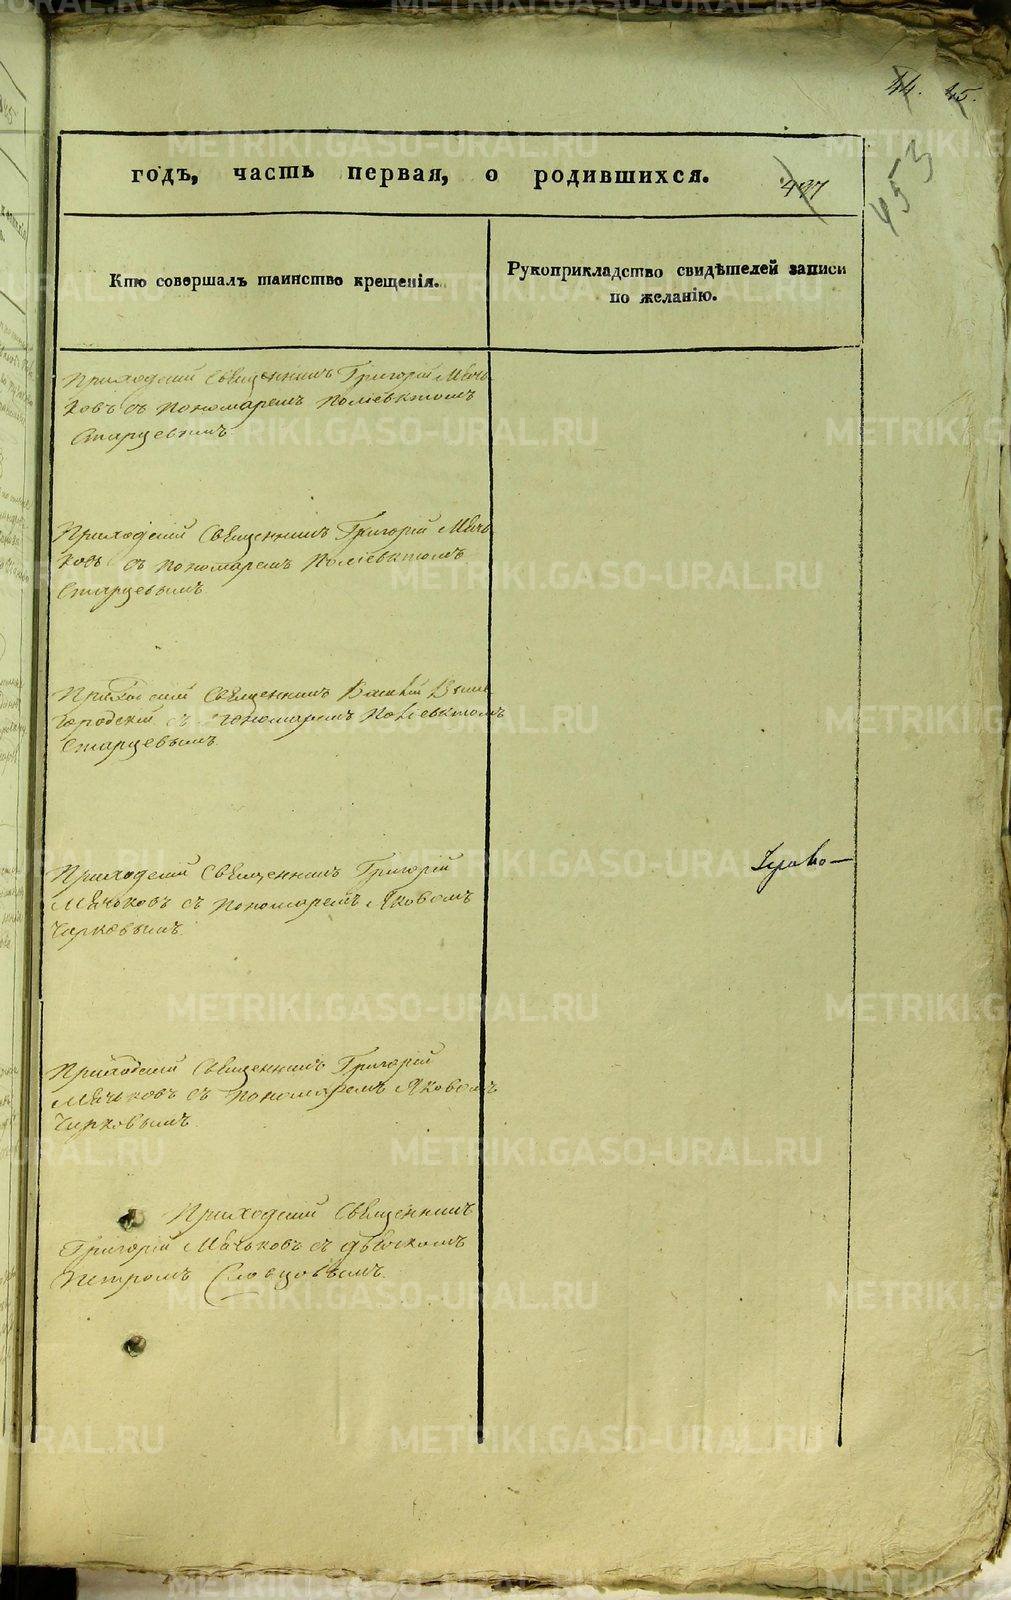 44. 45.
453
годъ, часть первая, о родившихся. 427
Кто совершалъ таинство крещенія.
Рукоприкладство свидѣтелей записи
по желанію.
Приходскій Священникъ Григорій Мячь
ковъ съ пономаремъ Поліевктомъ
Старцевымъ.
Приходскій Священникъ Григорій Мячь
ковъ съ пономаремъ Поліевктомъ
Старцевымъ
Приходскій Священникъ Василій Выше
городскій съ пономаремъ Поліевктомъ
Старцевымъ.
Приходскій Священникъ Григорій
Мячьковъ съ пономаремъ Яковомъ
Чирковымъ.
Приходскій Священникъ Григорій
Мячьковъ съ пономаремъ Яковомъ
Чирковымъ.
Приходскій Священникъ
Григорій Мячьковъ съ дьячкомъ
Петромъ Словцовымъ.
METRIKI.GASO-URAL.RU